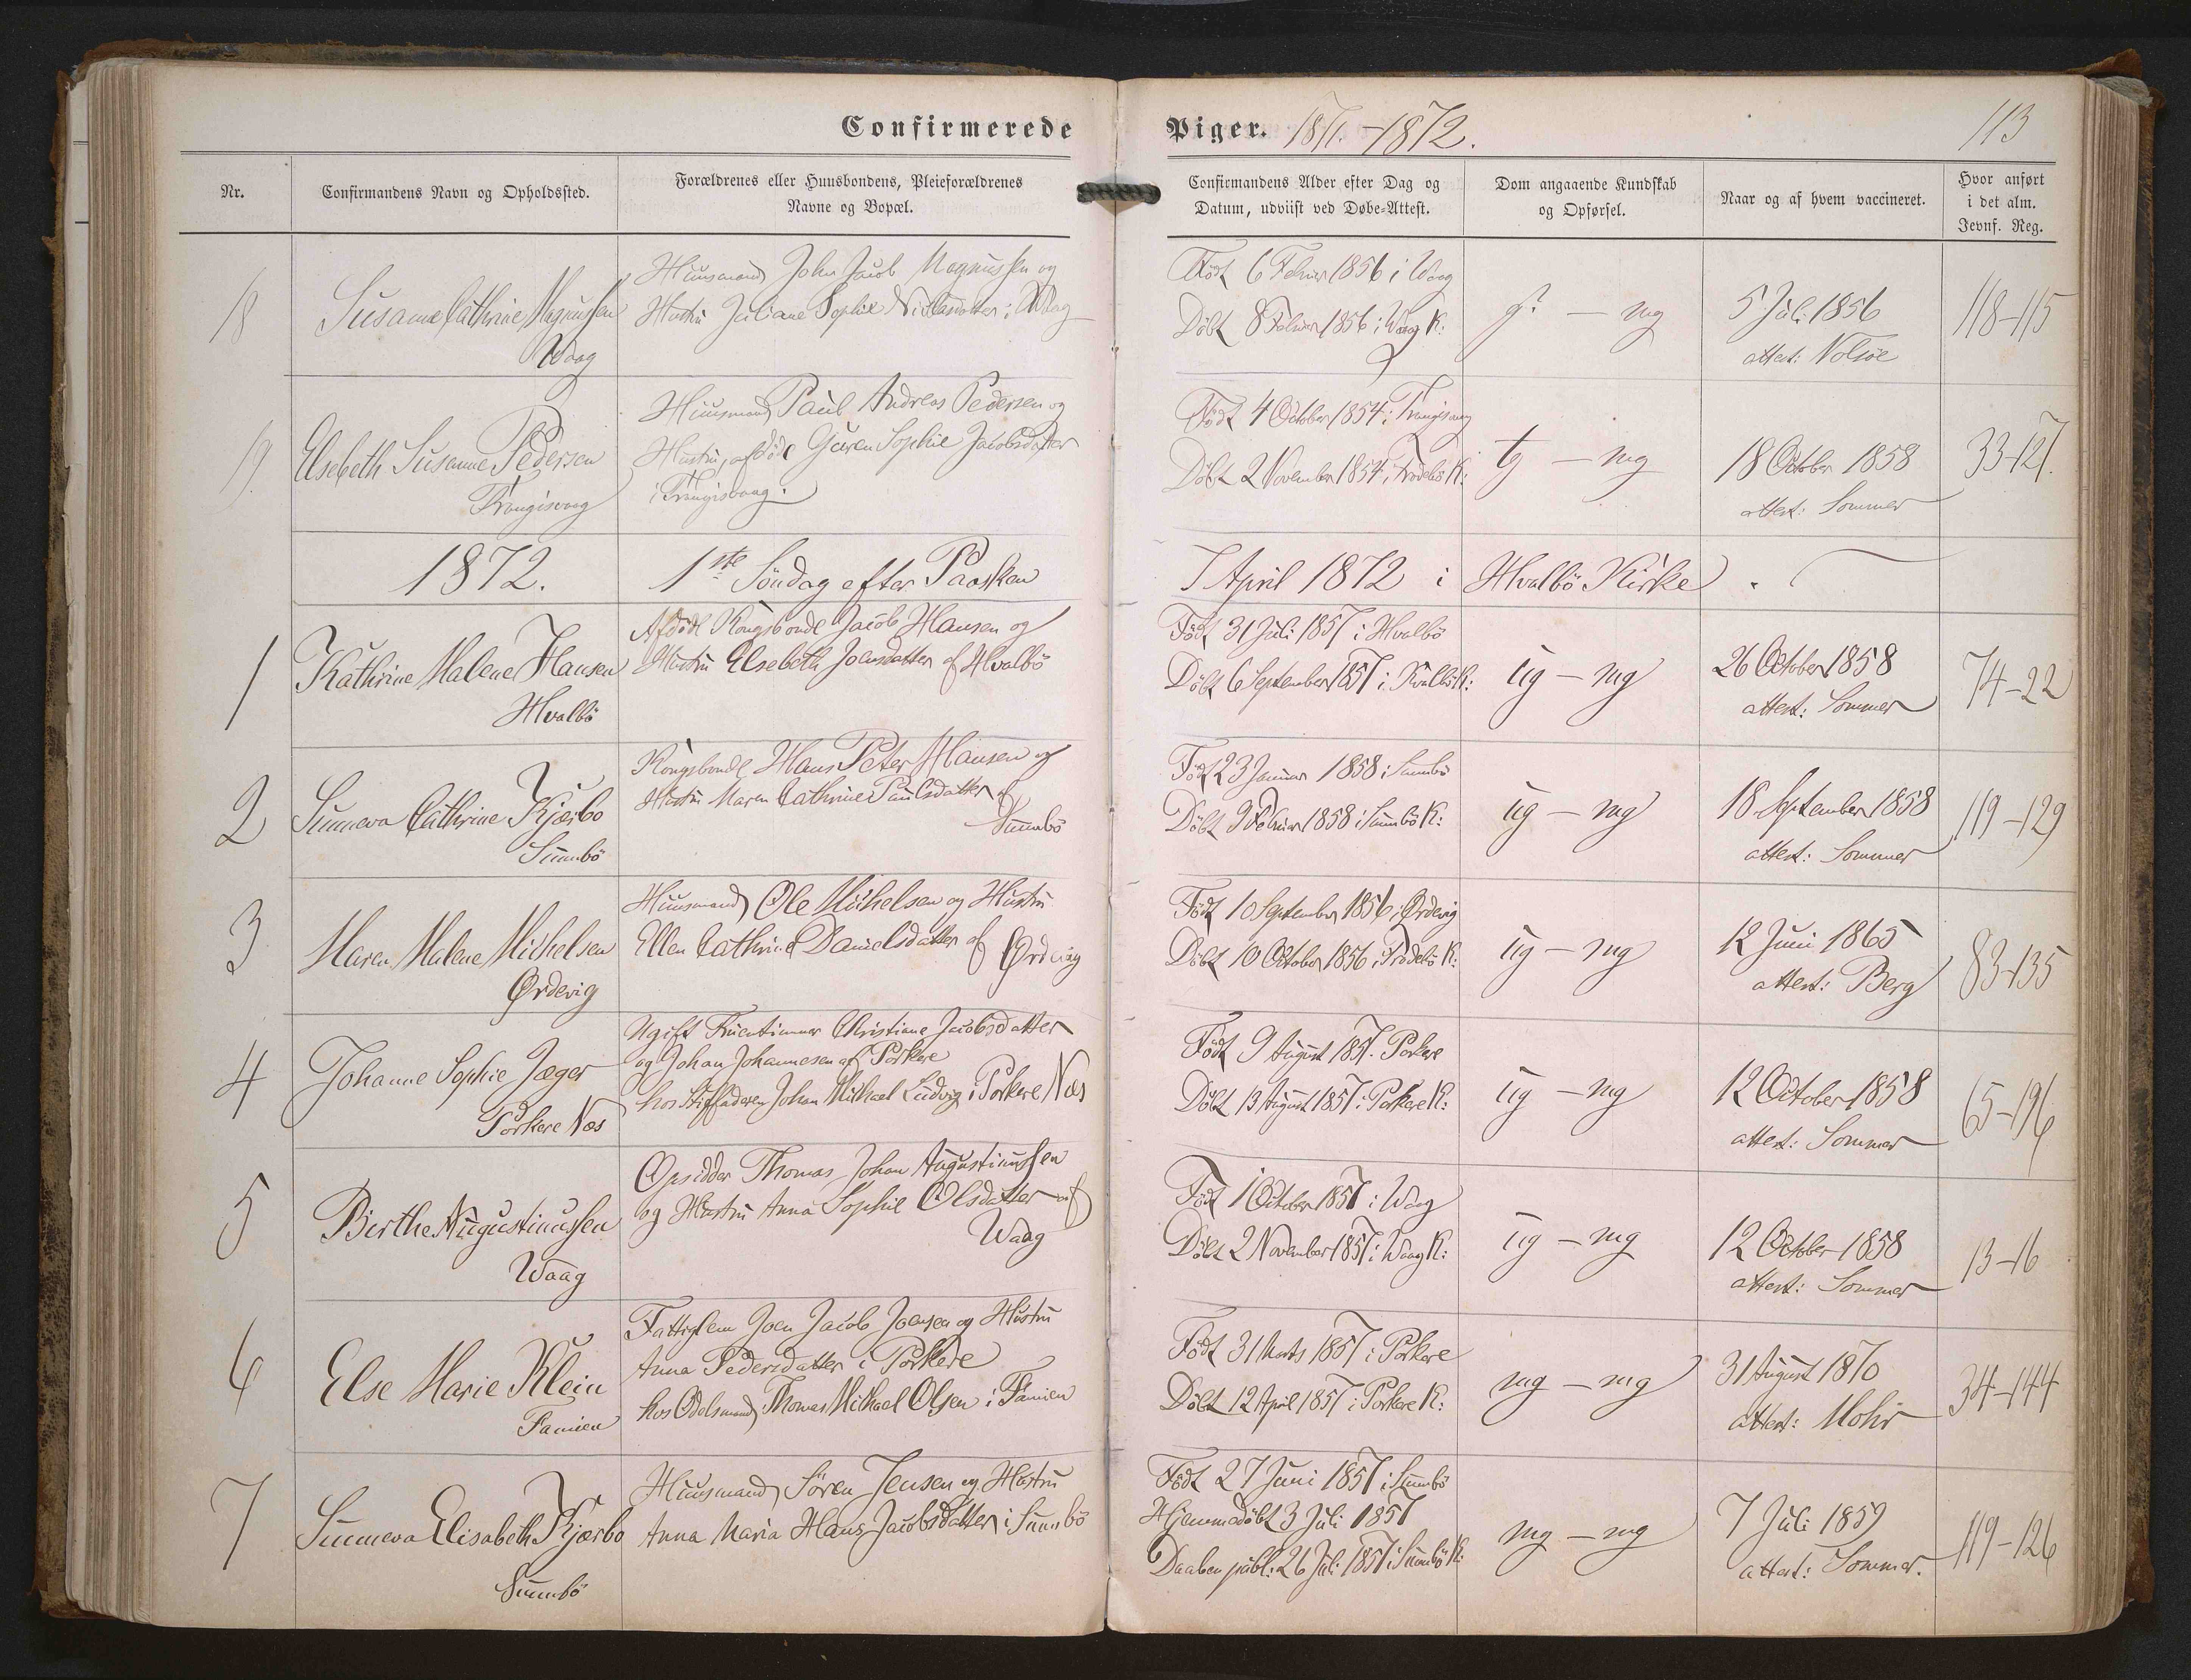 Confirmerede Piger. 1871.-1872.
113
Nr.
Confirmandens Navn og Opholdssted.
Forældrenes eller Huusbondens, Pleieforældrenes
Navne og Bopæl.
Confirmandens Alder efter Dag og
Datum, udviist ved Døbe-Attest.
Dom angaaende Kundskab
og Opførsel.
Naar og af hvem vaccineret.
Hvor anført
i det alm.
Jevnf. Reg.
18
Susanna Cathrine Magnussen
Waag
Huusmand John Jacob Magnussen og
Hustru Juliane Sophie Niclasdatter i Waag
Født 6 Februar 1856 i Waag
Döbt 8 Februar 1856 i Waag K:
g? - mg
5 Juli 1856
attest: Nolsöe
118-115
19
Elsebeth Susanne Pedersen
Trangisvaag
Huusmand Paul Andreas Pedersen og
Hustru, afdöde Guren Sophie Jacobsdatter
i Trangisvaag.
Födt 4 October 1854 i Trangisvaag
Döbt 2 November 1854 i Frodebö K:
tg - mg
18 October 1858
attest: Sommer
33-127.
1872. 1ste Söndag efter Paasken 7 April 1872 i Hvalbö Kirke.
1
Kathrine Malene Hansen
Hvalbö
Afdöde Kongsbonde Jacob Hansen og
Hustru Elsebeth Joensdatter af Hvalbö
Födt 31 Juli 1857 i Hvalbö
Döbt 6 September 1857 i Kvalbö K:
ug - mg
26 October 1858
attest: Sommer
74-22
2
Sunneva Cathrine Kjærbo
Sumbö
Kongsbonde Hans Peter Hansen og
Hustru Maren Cathrine Paulsdatter af
Sumbö
Födt 23 Januar 1858 i Sumbö
Döbt 9 Februar 1858 i Sumbö K:
ug - mg
18 September 1858
attest: Sommer
119-129
3
Maren Malene Michelsen
Ørdevig
Huusmand Ole Michelsen og Hustru
Ellen Cathrine Danielsdatter af Ørdevig
Födt 10 September 1856 i Ørdevig
Döbt 10 October 1856 i Frodebö K:
ug - mg
12 Juni 1865
attest: Berg
83-135
4
Johanne Sophie Jæger
Porkere Næs
Ugift Fruentimmer Christiane Jacobsdatter
og Johan Johannesen af Porkere
hos Stiffaderen Johan Michael Ludvig i Porkere Næs
Födt 9 August 1857. Porkere
Döbt 13 August 1857 i Porkere K:
ug - mg
12 October 1858
attest: Sommer
65-196
5
Birthe Augustinussen
Waag
Opsidder Thomas Johan Augustinussen
og Hustru Anna Sophie Olsdatter af
Waag
Födt 1 October 1857 i Waag
Döbt 2 November 1857 i Waag K:
ug - mg
12 October 1858
attest: Sommer
13-16
6
Else Marie Klein
Famien
Fattiglem Joen Jacob Joensen og Hustru
Anna Pedersdatter i Porkere
hos Odelsmand Thomas Michael Olsen i Famien
Födt 31 Marts 1857 i Porkere
Döbt 12 April 1857 i Porkere K:
mg - mg
31 August 1870
attest: Mohr
34-144
7
Sunneva Elisabeth Kjærbo
Sumbö
Huusmand Sören Jensen og Hustru
Anna Maria Hans Jacobsdatter i Sumbö
Födt 27 Juni 1857 i Sumbö
Hjemmedöbt 3 Juli 1857
Daaben publ: 26 Juli 1857 i Sumbö K:
mg - mg
7 Juli 1859
attest: Sommer.
119-126